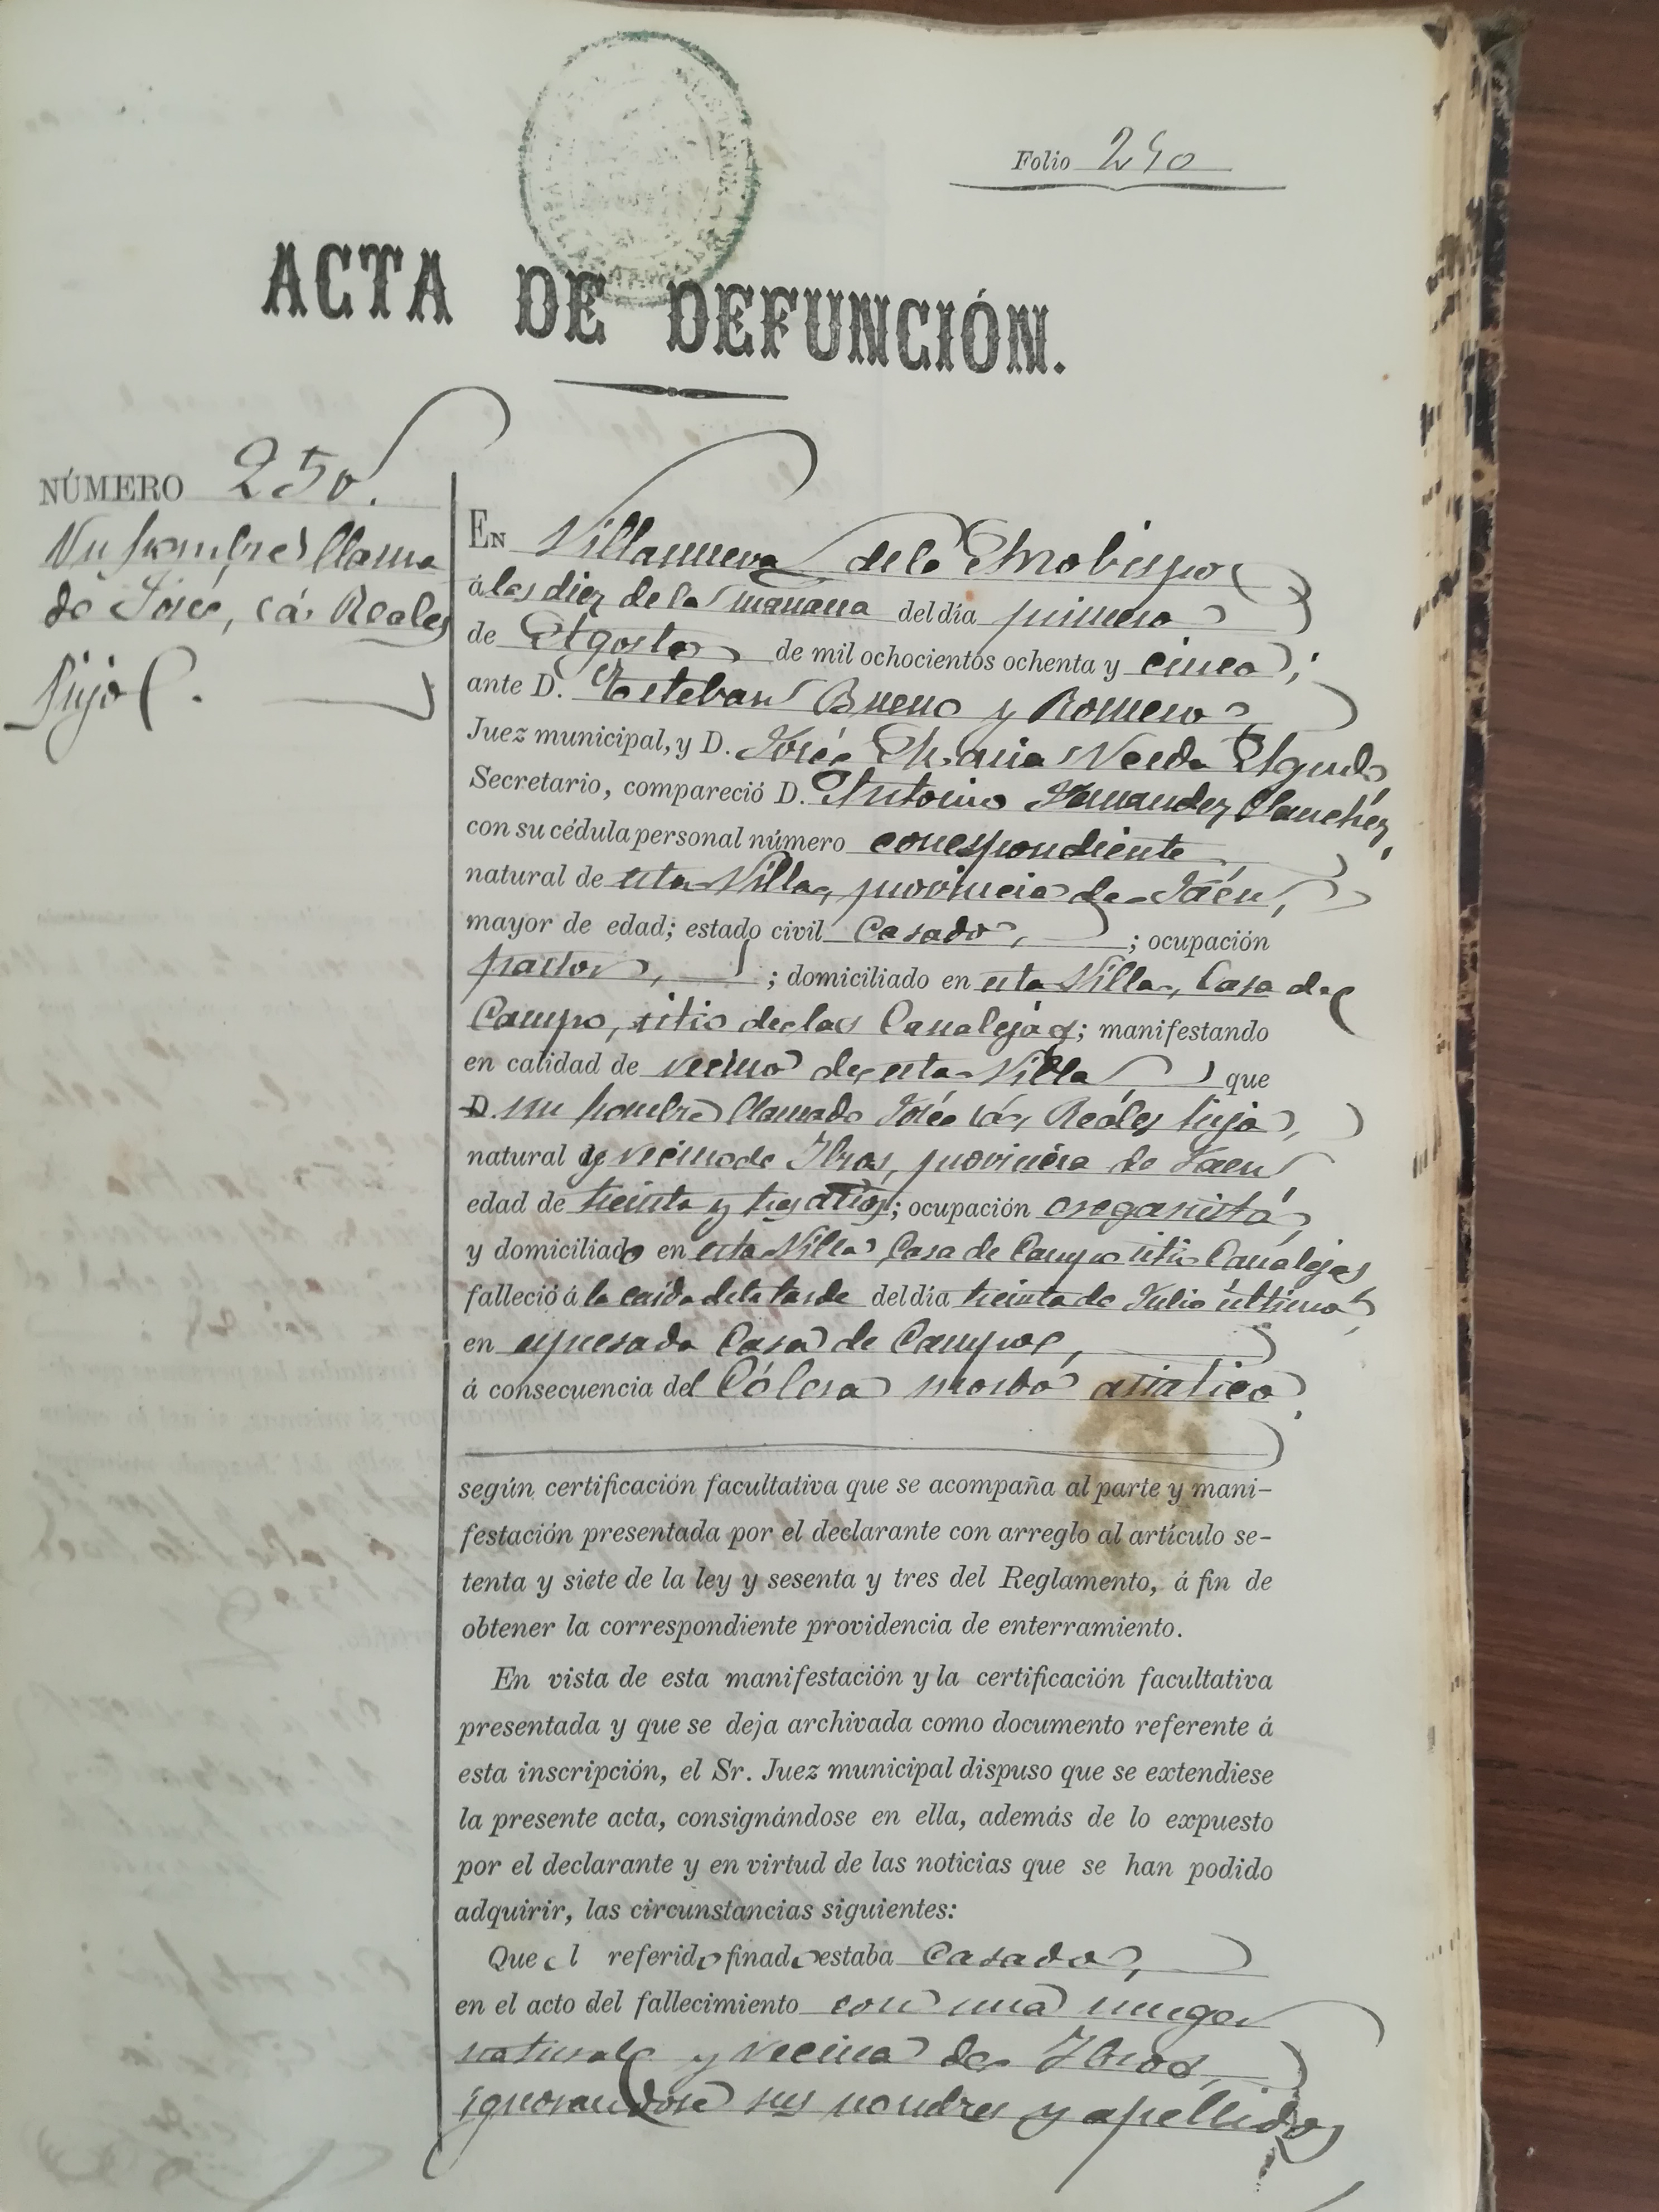 Folio 240
ACTA DE DEFUNCIÓN.
NÚMERO 250.
Un hombre llama
do José, (á) Reales
Lujo.
EN Villanueva del Arzobispo
á las diez de la mañana del día primero
de Agosto de mil ochocientos ochenta y cinco;
ante D. Esteban Bueno y Romero
Juez municipal, y D. José María Agudo
Secretario, compareció D. Antonio Fernandez Sanchez,
con su cédula personal número correspondiente
natural de esta Villa, provincia de Jaén,
mayor de edad; estado civil Casado, ; ocupación
pastor, ; domiciliado en esta Villa, Casa de
Campo, sitio de las Canalejas; manifestando
en calidad de vecino de esta Villa que
D. un hombre llamado José (á) Reáles Lujo,
natural y vecino de Ibros, provincia de Jaen
edad de treinta y tres años; ocupación
y domiciliado en esta Villa Casa de Campo sitio Canalejas
falleció á la caida de la tarde del día treinta de Julio último
en espresada Casa de Campo,
á consecuencia del Cólera morbo asiatico
según certificación facultativa que se acompaña al parte y mani-
festación presentada por el declarante con arreglo al artículo se-
tenta y siete de la ley y sesenta y tres del Reglamento, á fin de
obtener la correspondiente providencia de enterramiento.
En vista de esta manifestación y la certificación facultativa
presentada y que se deja archivada como documento referente á
esta inscripción, el Sr. Juez municipal dispuso que se extendiese
la presente acta, consignándose en ella, además de lo expuesto
por el declarante y en virtud de las noticias que se han podido
adquirir, las circunstancias siguientes:
Que el referido finado estaba Casado,
en el acto del fallecimiento con una muger
natural y vecina de Ibros,
ignorandose sus nombres y apellidos